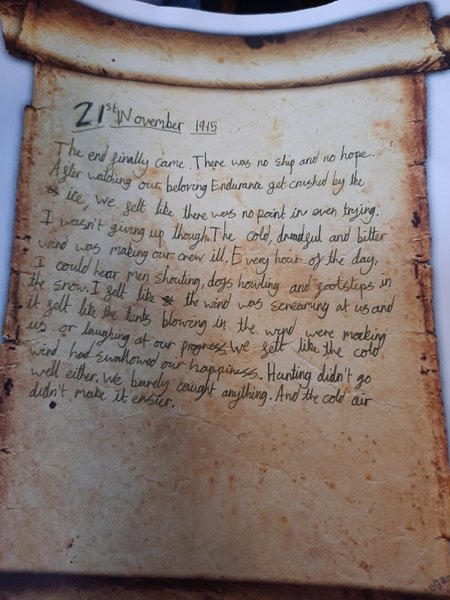 21st November 1915
The end finally came. There was no ship and no hope.
After watching our beloving Endurance get crushed by the
ice, we felt like there was no point in even trying.
I wasn't giving up though. The cold, dreadful and bitter
wind was making our crew ill. Every hour of the day,
I could hear men shouting, dogs howling and footsteps in
the snow. I felt like the wind was screaming at us and
it felt like the tents blowing in the wind were mocking
us or laughing at our progress. We felt like the cold
wind had swallowed our happiness. Hunting didn't go
well either. We barely caught anything. And the cold air
didn't make it easier.